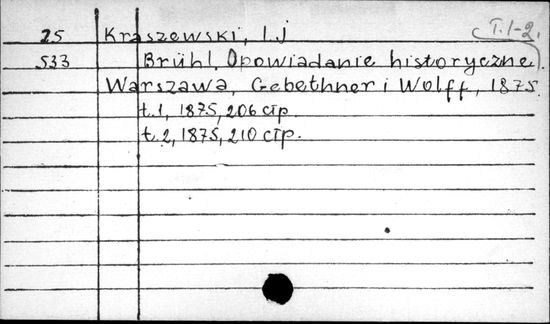 25 Kraszewski, I.J T. 1-2.
533 Brühl. Opowiadanie historyczne.
Warszawa, Gebethner i Wolff, 1875.
t.1, 1875, 206 стр.
t.2, 1875, 210 стр.